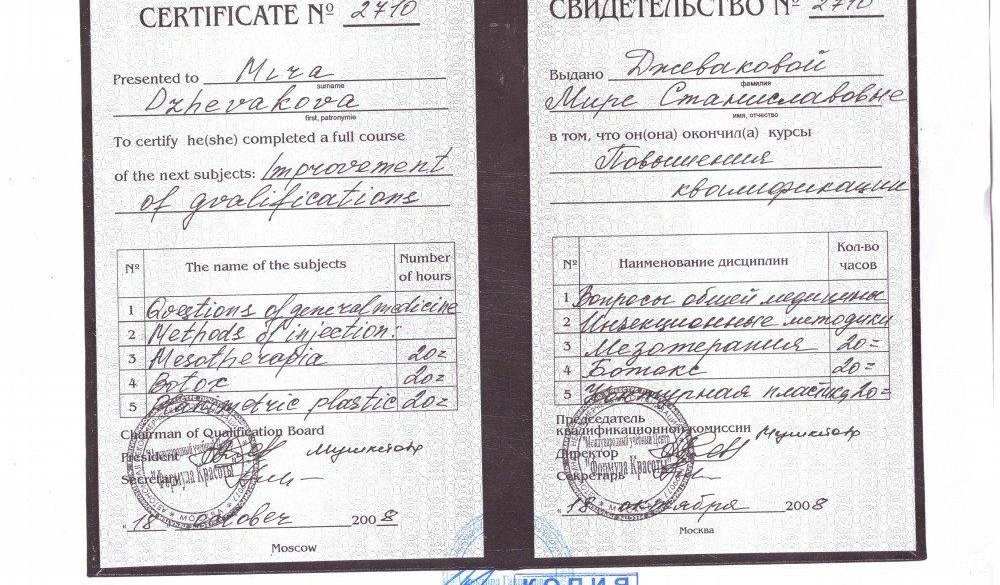 CERTIFICATE № 2710
Presented to Mira
surname
Dzhevakova
first, patronymic
To certify he(she) completed a full course
of the next subjects: Improvement
of gvalifications
№ The name of the subjects Number of hours
1 Qvestions of general medicine
2 Methods of injection:
3 Mesotherapia 20=
4 Botox 20=
5 plastic 20=
Chairman of Qualification Board
President Мушкетов
Secretary
"Формула Красоты"
МОСКВА
"18" October 2008
Moscow
СВИДЕТЕЛЬСТВО № 2710
Выдано Джеваковой
фамилия
Мире Станиславовне
имя, отчество
в том, что он(она) окончил(а) курсы
Повышения
квалификации
№ Наименование дисциплин Кол-во часов
1 Вопросы общей медицины
2 Инъекционные методики
3 Мезотерапия 20=
4 Ботокс 20=
5 Контурная пластика 20=
Председатель
квалификационной комиссии
Директор Мушкетов
Секретарь
"Международный Учебный Центр
"Формула Красоты"
"18" октября 2008
Москва